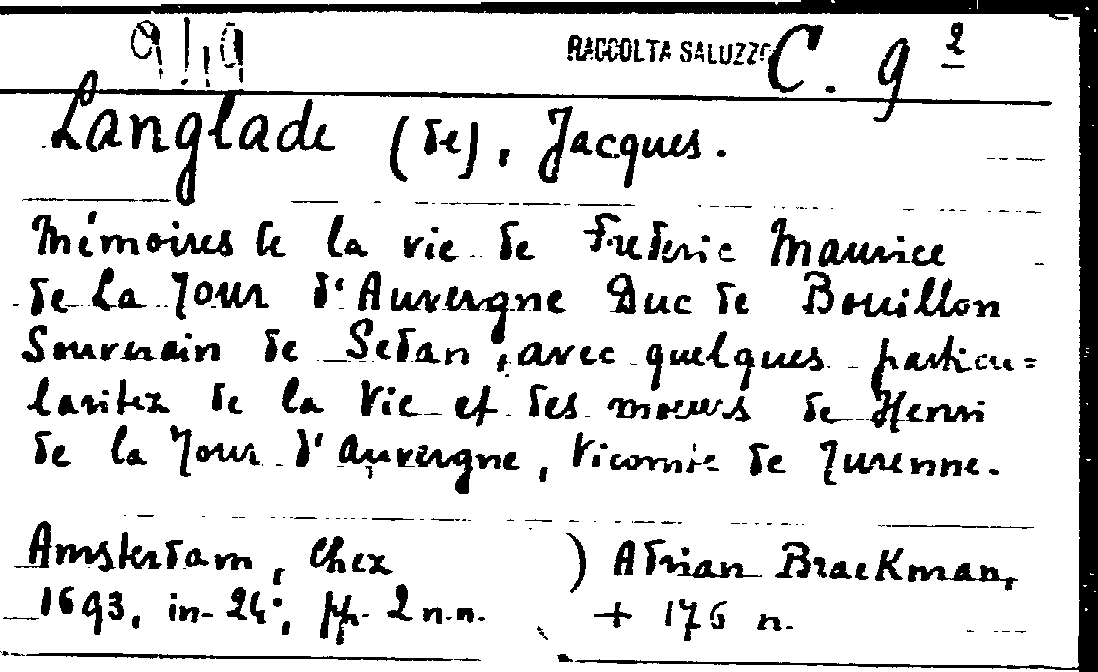 9 19 RACCOLTA SALUZZO C. 9 2
Langlade (de), Jacques.
Mémoires de la vie de Frederic Maurice
de La Tour d'Auvergne Duc de Bouillon
Souverain de Sedan, avec quelques particu=
laritez de la Vie et des moeurs de Henri
de la Tour d'Auvergne, Vicomte de Turenne.
Amsterdam, chez ) Adrian Braekman,
1693, in-24°, pp. 2 n.n. + 176 n.